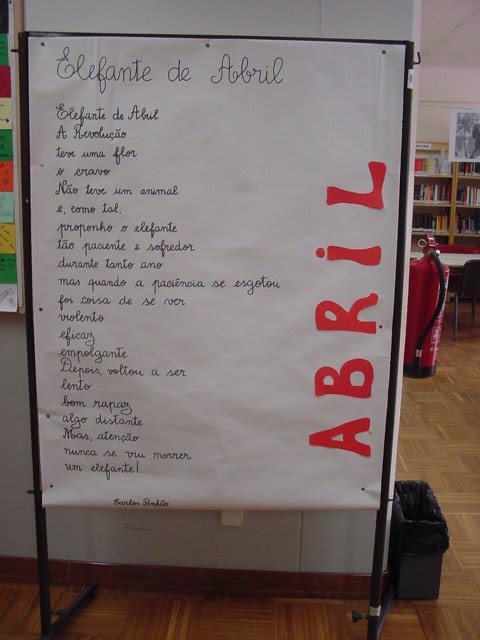 Elefante de Abril
Elefante de Abril
A Revolução
teve uma flor
o cravo
Não teve um animal
e, como tal,
proponho o elefante
tão paciente e sofredor
durante tanto ano
mas quando a paciência se esgotou
foi coisa de se ver
violento
eficaz
empolgante
Depois, voltou a ser
lento
bom rapaz
algo distante
Mas, atenção
nunca se viu morrer
um elefante!
Carlos Pinhão
ABRiL